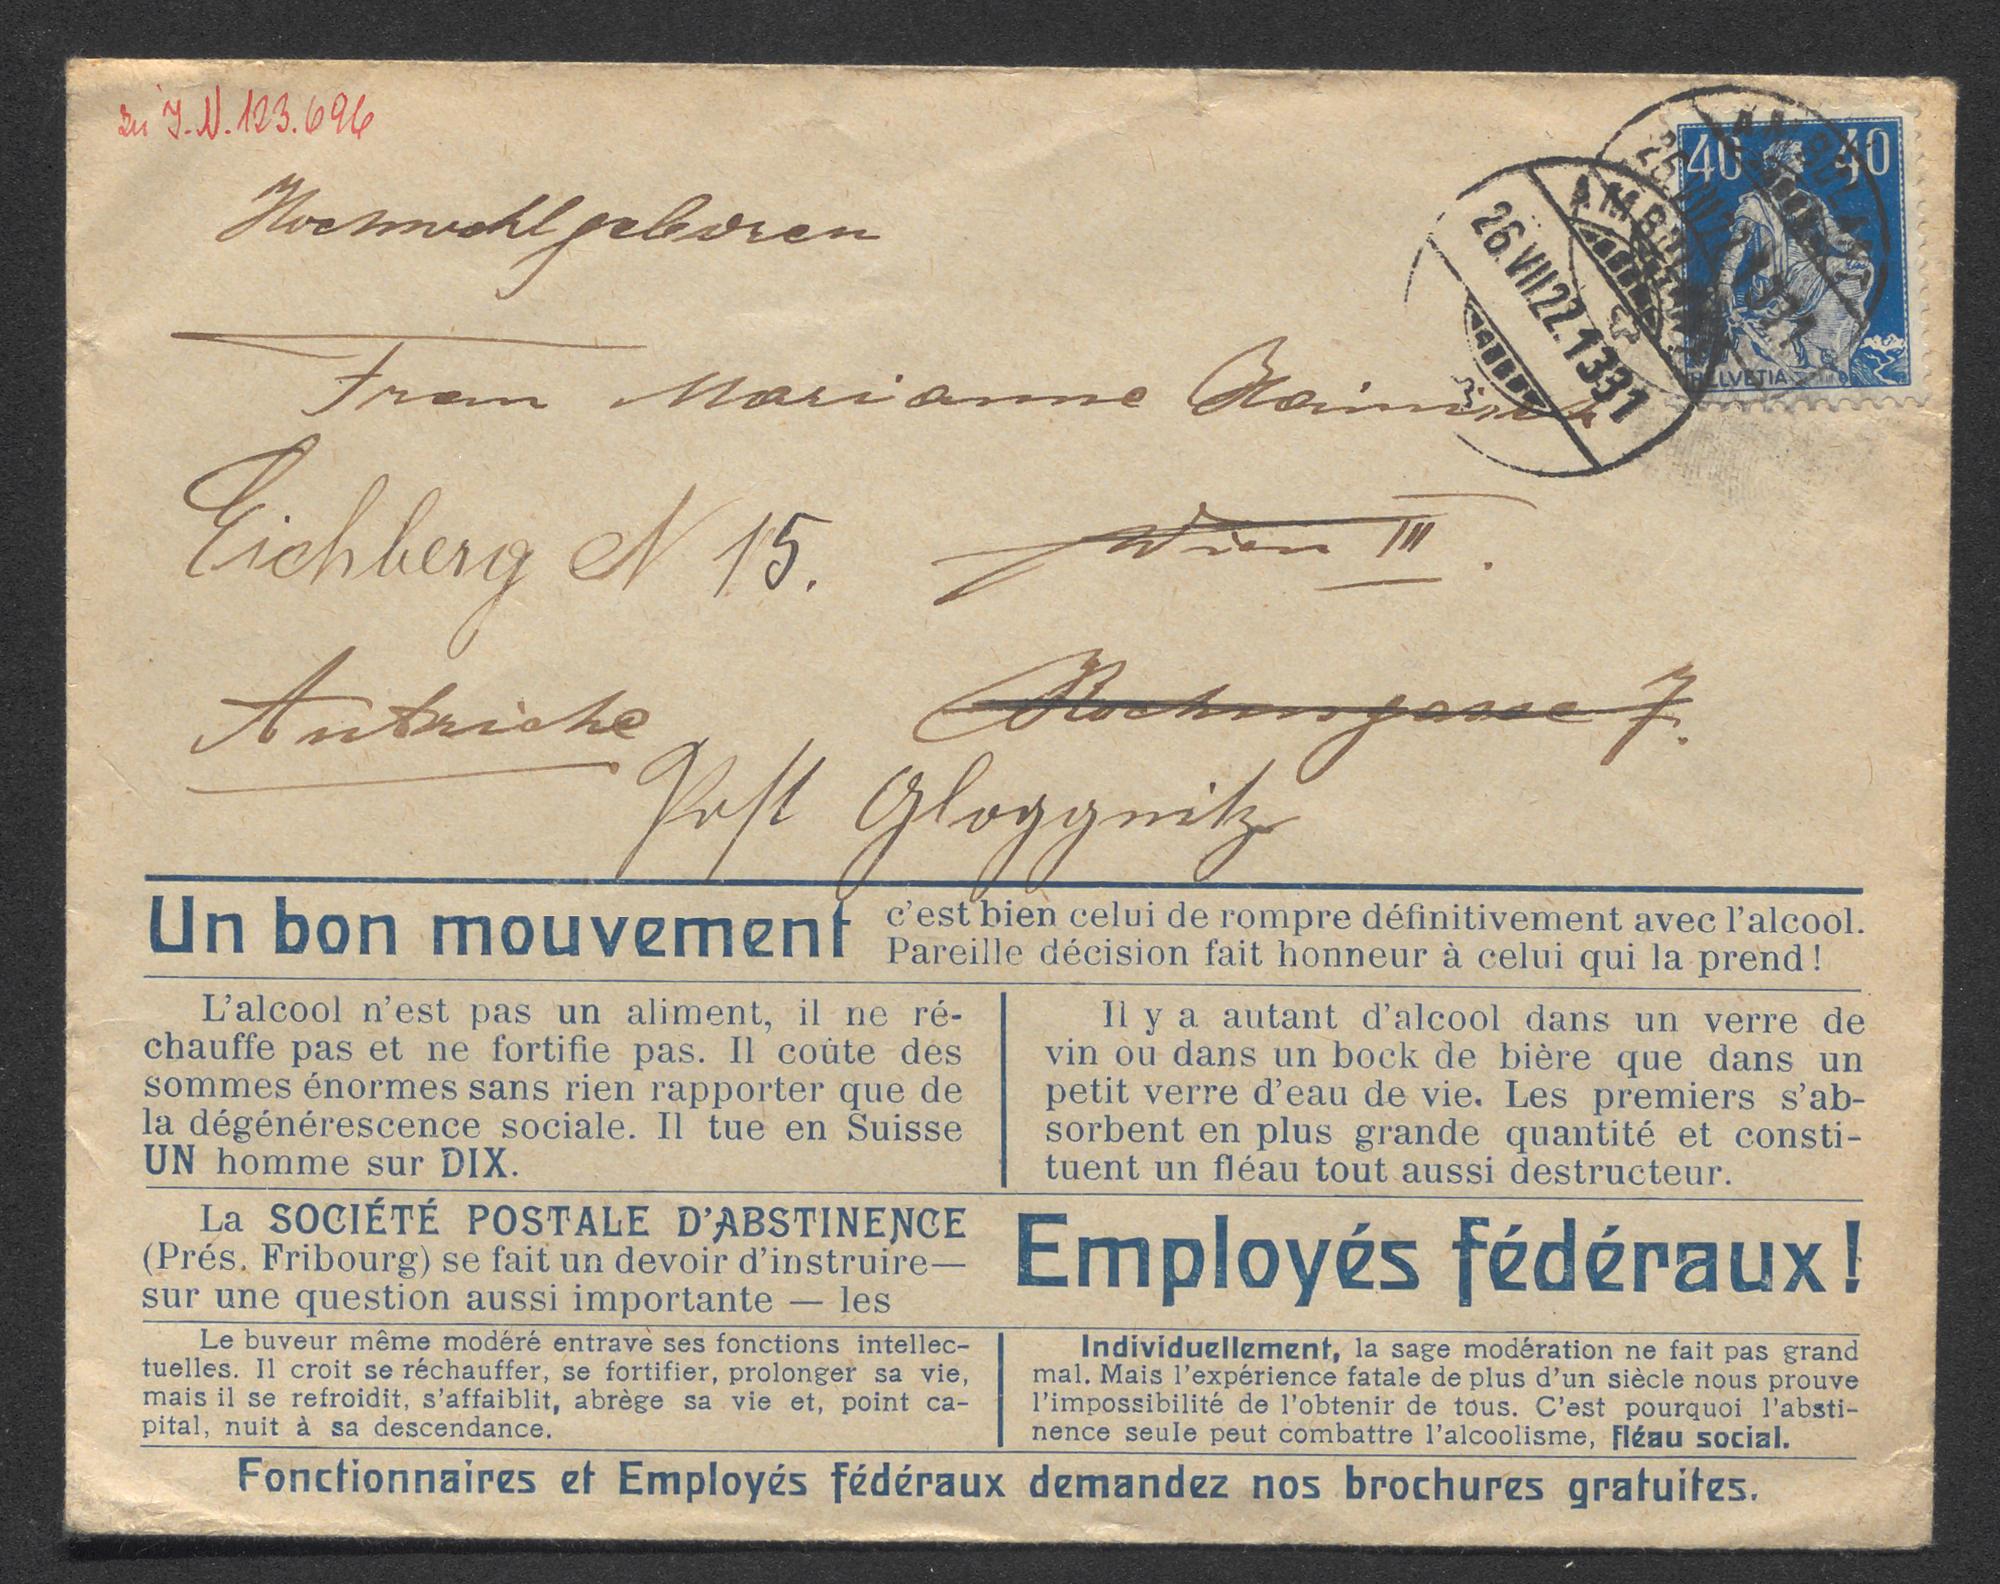 zu I.N. 123.696
40 40
HELVETIA
26.VII.22.1331
AMBULANT
26.VII.22.1331
Hochwohlgeboren
Frau Marianne Hainisch
Eichberg N 15. Wien III.
Autriche Rochusgasse 7.
Post Gloggnitz
Un bon mouvement c'est bien celui de rompre définitivement avec l'alcool.
Pareille décision fait honneur à celui qui la prend!
L'alcool n'est pas un aliment, il ne ré-
chauffe pas et ne fortifie pas. Il coûte des
sommes énormes sans rien rapporter que de
la dégénérescence sociale. Il tue en Suisse
UN homme sur DIX.
Il y a autant d'alcool dans un verre de
vin ou dans un bock de bière que dans un
petit verre d'eau de vie. Les premiers s'ab-
sorbent en plus grande quantité et consti-
tuent un fléau tout aussi destructeur.
La SOCIÉTÉ POSTALE D'ABSTINENCE
(Prés. Fribourg) se fait un devoir d'instruire—
sur une question aussi importante — les
Employés fédéraux!
Le buveur même modéré entrave ses fonctions intellec-
tuelles. Il croit se réchauffer, se fortifier, prolonger sa vie,
mais il se refroidit, s'affaiblit, abrège sa vie et, point ca-
pital, nuit à sa descendance.
Individuellement, la sage modération ne fait pas grand
mal. Mais l'expérience fatale de plus d'un siècle nous prouve
l'impossibilité de l'obtenir de tous. C'est pourquoi l'absti-
nence seule peut combattre l'alcoolisme, fléau social.
Fonctionnaires et Employés fédéraux demandez nos brochures gratuites.